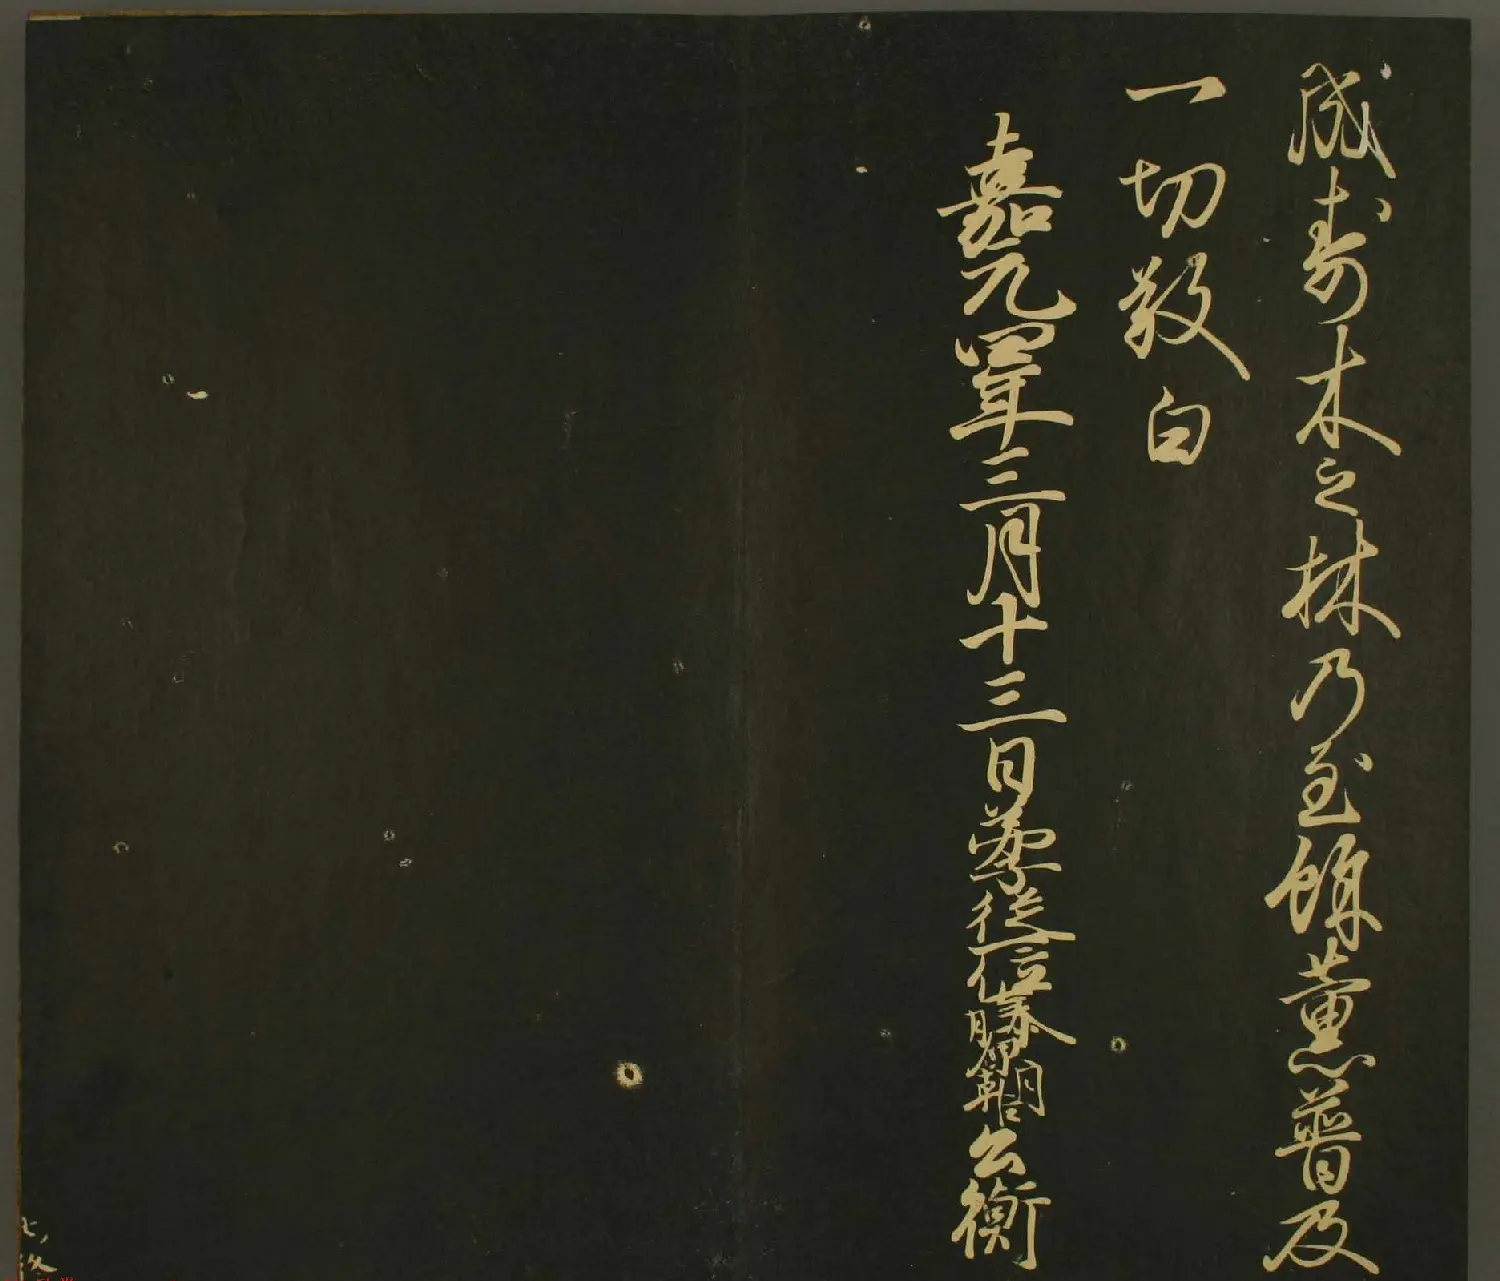 成寿木之林乃至餘薫普及
一切敬白
嘉元四年三月十三日弟子從一位藤原朝臣公衡